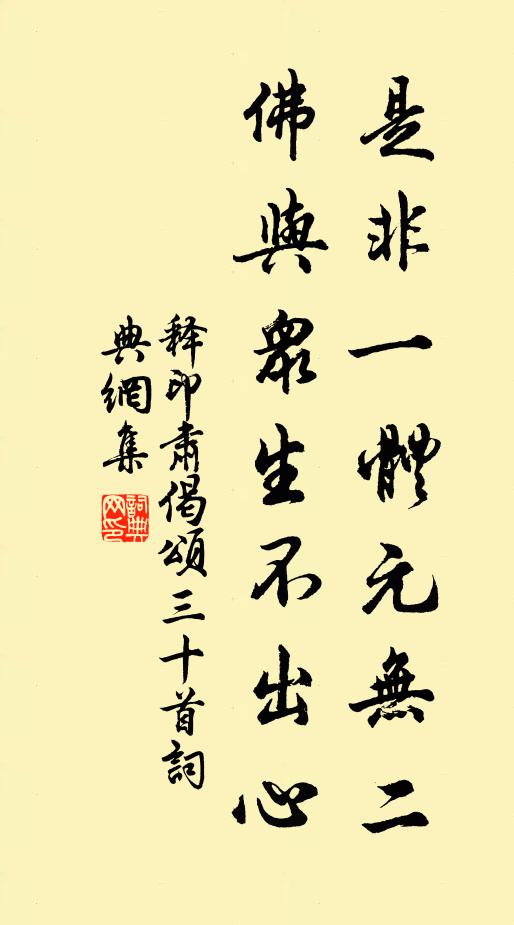 是非一體元無二
佛與衆生不出心
释印肃偈頌三十首詞
典網集
詞典
网印